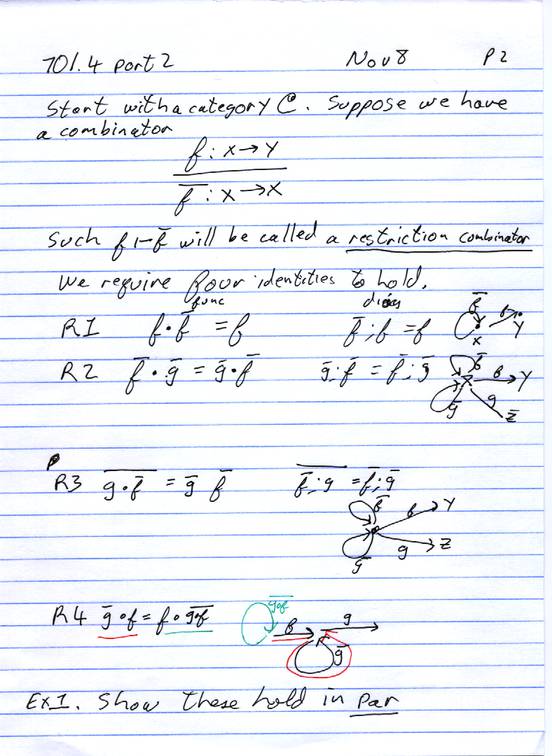 701.4 part 2 Nov 8 P 2
Start with a category C. Suppose we have
a combinator
f : X → Y
f̅ : X → X
Such f ↦ f̅ will be called a restriction combinator
We require four identities to hold.
func diag
R1 f · f̅ = f f̅ ; f = f f̅ f X Y
R2 f̅ · g̅ = g̅ · f̅ g̅ ; f̅ = f̅ ; g̅ f̅ f Y g̅ g Z
R3 \overline{g · f̅} = g̅ f̅ \overline{f̅ ; g} = f̅ ; g̅ f̅ f Y g̅ g Z
R4 g̅ ∘ f = f ∘ \overline{g∘f} \overline{g∘f} f g g̅
Ex1. Show these hold in Par